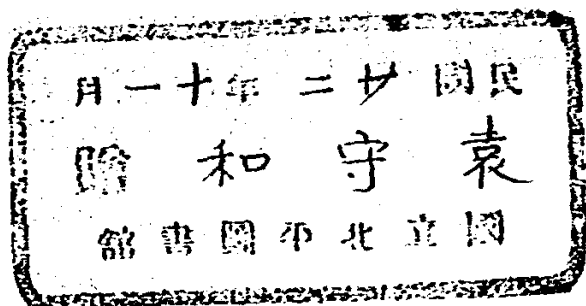 民國廿二年十一月
袁守和贈
國立北平圖書館